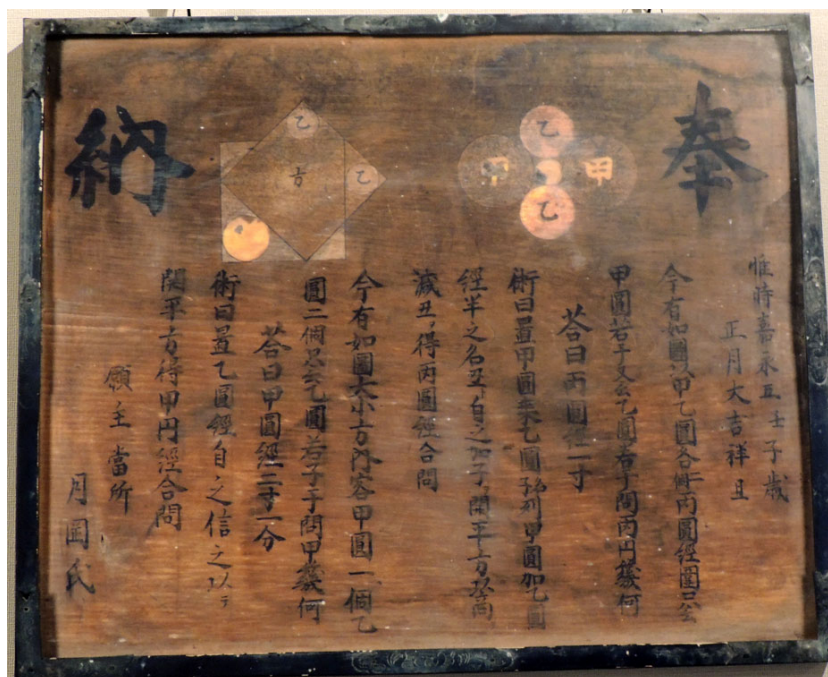 奉
納
甲
乙
乙
乙
乙
方
惟時嘉永五壬子歳
正月大吉祥旦
今有如圖以甲乙圓各二個丙圓經圍只云
甲圓若干又云乙圓若干問丙円幾何
荅曰丙圓徑一寸
術曰置甲圓乗乙圓名子列甲圓加乙圓
經半之名丑自之加子開平方
減丑得丙圓經合問
今有如圖大小方内容甲圓一個乙
圓二個只云乙圓若干問甲幾何
荅曰甲圓經二寸一分
術曰置乙圓經自之倍之以テ
開平方得甲円經合問
願主當所
月岡氏